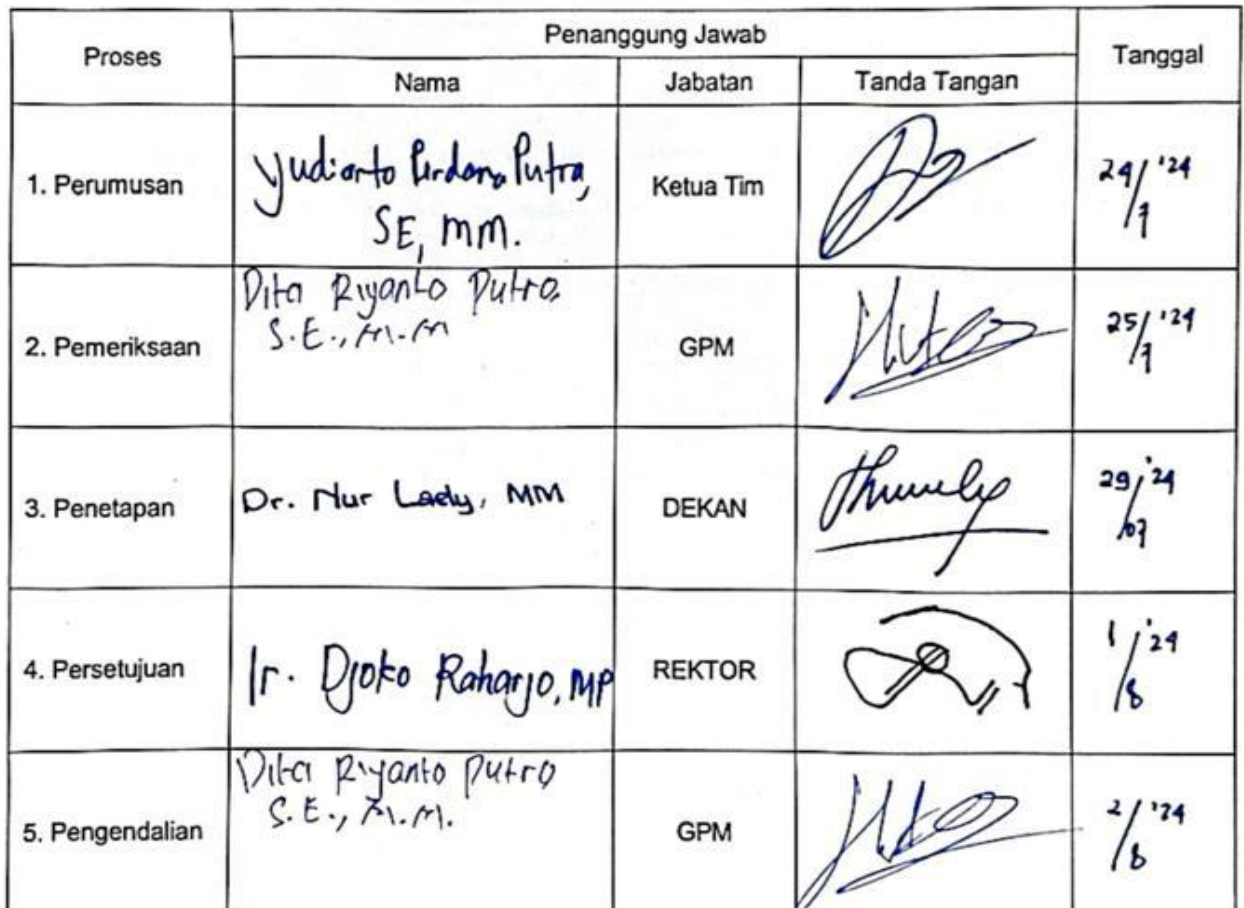 Proses
Penanggung Jawab
Tanggal
Nama
Jabatan
Tanda Tangan
1. Perumusan
Yudiarto Perdana Putra,
SE, MM.
Ketua Tim
24/7 '24
2. Pemeriksaan
Dita Riyanto Putro.
S.E., M.M
GPM
25/7 '24
3. Penetapan
Dr. Nur Laely, MM
DEKAN
29/07 '24
4. Persetujuan
Ir. Djoko Raharjo, MP
REKTOR
1/8 '24
5. Pengendalian
Dita Riyanto Putro
S.E., M.M.
GPM
2/8 '24